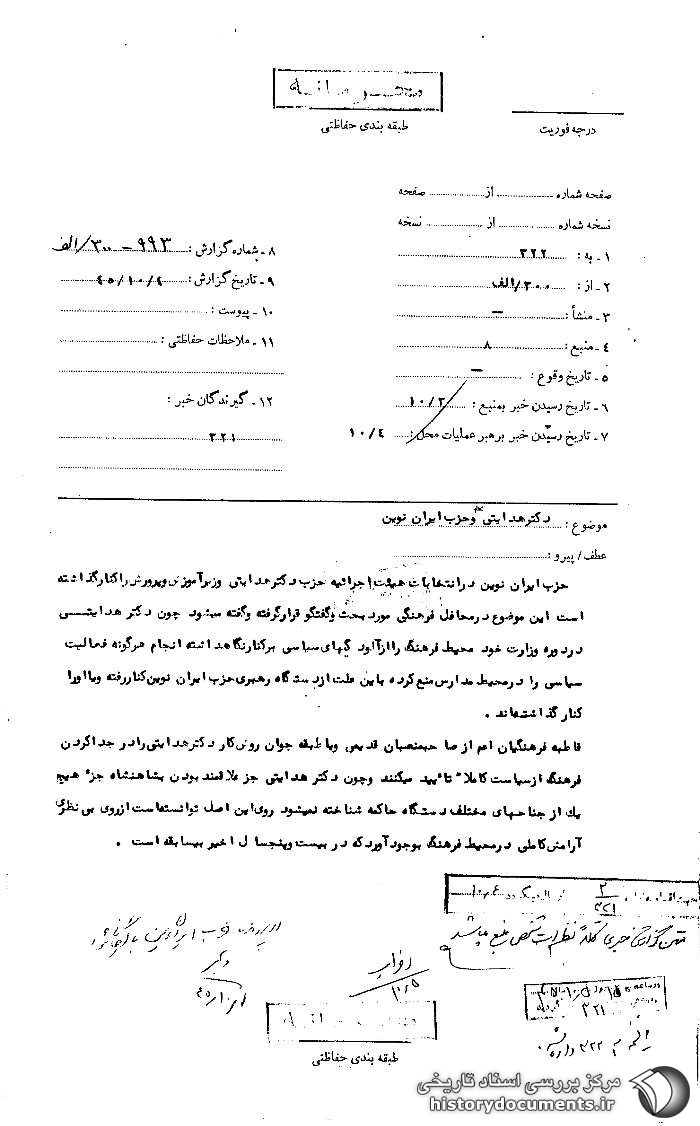 محرمانه
طبقه بندی حفاظتی
درجه فوریت
صفحه شماره ........ از ........ صفحه
نسخه شماره ........ از ........ نسخه
۱ ـ به : ۳۲۲
۲ ـ از : ۳۰۰/الف
۳ ـ منشأ : ـ
۴ ـ منبع : ۸
۵ ـ تاریخ وقوع : ـ
۶ ـ تاریخ رسیدن خبر بمنبع : ۱۰/۳
۷ ـ تاریخ رسیدن خبر برهبر عملیات محل : ۱۰/۴
۸ ـ شماره گزارش : ۹۹۳ ـ ۳۰۰/الف
۹ ـ تاریخ گزارش : ۴۵/۱۰/۴
۱۰ ـ پیوست :
۱۱ ـ ملاحظات حفاظتی :
۱۲ ـ گیرندگان خبر :
۳۲۱
موضوع : دکتر هدایتی و حزب ایران نوین
عطف / پیرو :
حزب ایران نوین در انتخابات هیئت اجرائیه حزب دکتر هدایتی وزیر آموزش و پرورش را کنار گذاشته
است این موضوع در محافل فرهنگی مورد بحث و گفتگو قرار گرفته و گفته میشود چون دکتر هدایتی
در دوره وزارت خود محیط فرهنگ را از آلودگیهای سیاسی برکنار نگاهداشته انجام هرگونه فعالیت
سیاسی را در محیط مدارس منع کرده باین علت از دستگاه رهبری حزب ایران نوین کنار رفته ویا اورا
کنار گذاشته‌اند .
قاطبه فرهنگیان اعم از صاحبمنصبان قدیمی ویا طبقه جوان روش کار دکتر هدایتی را در جدا کردن
فرهنگ از سیاست کاملا" تائیید میکنند وچون دکتر هدایتی جز علاقمند بودن بشاهنشاه جزء هیچ
یك از جناحهای مختلف دستگاه حاکمه شناخته نمیشود روی این اصل توانسته‌است از روی بی نظری
آرامش کاملی در محیط فرهنگ بوجود آورد که در بیست و پنجسال اخیر بیسابقه است .
۳۲۱
متن گزارش خبری نظرات شخصی منبع میباشد
۱۰/۵
۴۵/۱۰/
۳۲۱
۳۲۲
طبقه بندی حفاظتی
مرکز بررسی اسناد تاریخی
historydocuments.ir